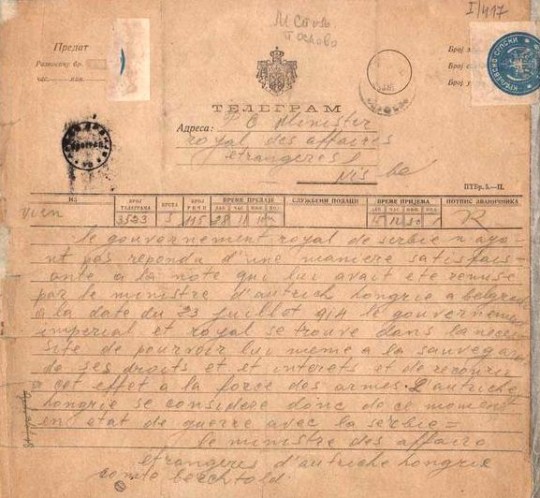 I/417
Предат
ТЕЛЕГРАМ
Адреса: P E Minister
royal des affaires
etrangeres
Nis be
ПТБр. 5.—II.
ИЗ
БРОЈ ТЕЛЕГРАМА
ВРСТА
БРОЈ РЕЧИ
ВРЕМЕ ПРЕДАЈЕ
СЛУЖБЕНИ ПОДАЦИ
ВРЕМЕ ПРИЈЕМА
ПОТПИС ЗВАНИЧНИКА
Vien 3523 115 28 11
le gouvernement royal de serbie n aya-
nt pas repondu d'une maniere satisfais-
ante a la note qui lui avait ete remise
par le ministre d'autrich hongrie a belgrad
a la date du 23 juillet 914 le gouvernement
imperial et royal se trouve dans la neces
site de pourvoir lui meme a la sauvegar
de ses droits et et interets et de recourir
a cet effet a la force des armes. L'autriche
hongrie se considere donc de ce moment
en etat de guerre avec la serbie =
le ministre des affairo
etrangeres d'autriche hongrie
comte berchtold